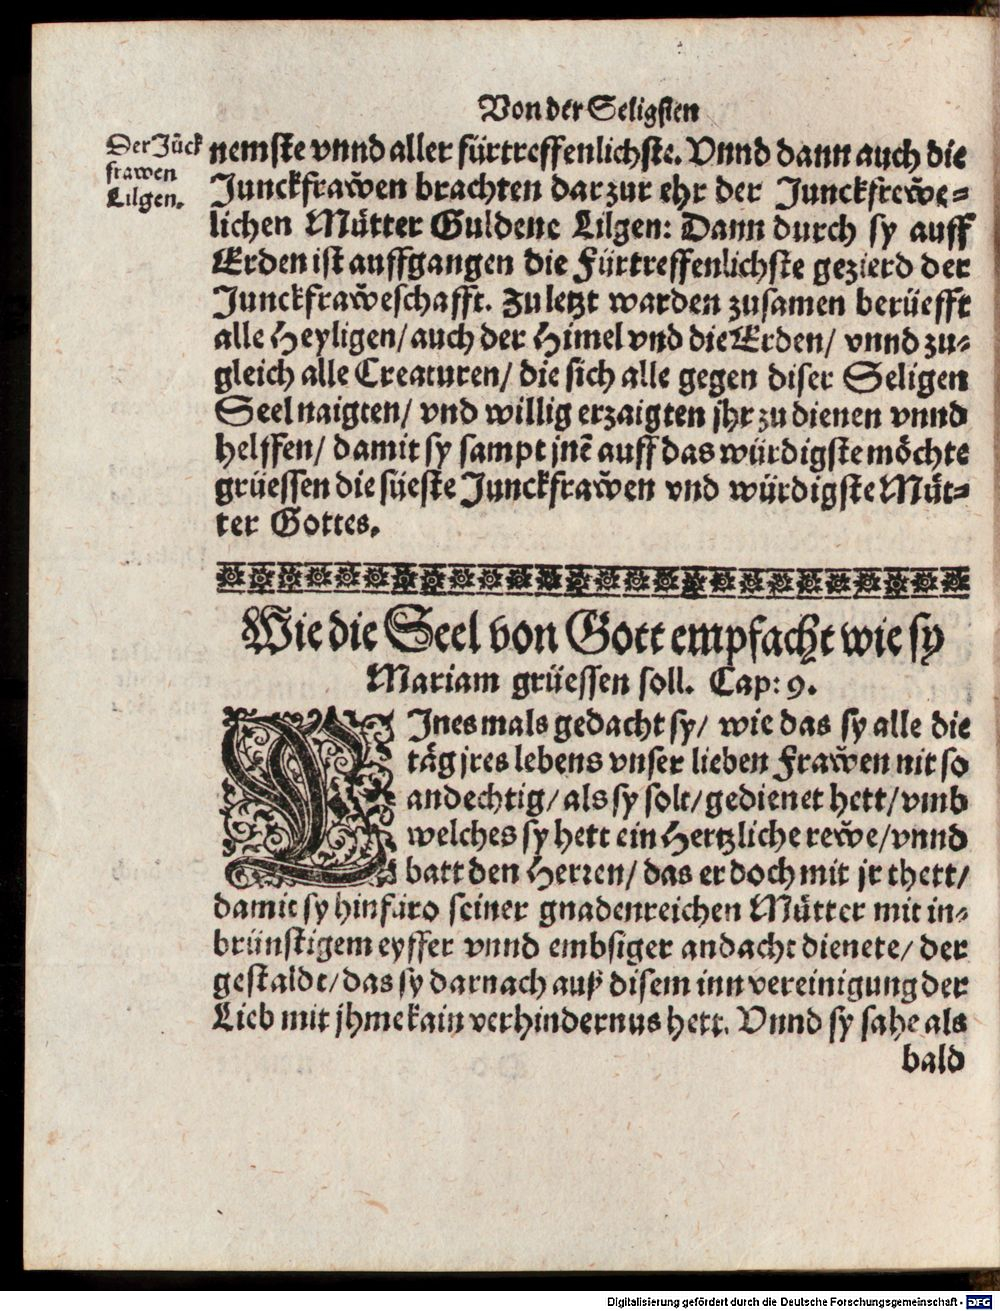 Von der Seligsten
Der Jūck
frawen
Lilgen.
nemste vnnd aller fürtreffenlichste. Vnnd dann auch die
Junckfraw̆en brachten dar zur ehr der Junckfrew̆e⸗
lichen Mütter Guldene Lilgen: Dann durch sy auff
Erden ist auffgangen die Fürtreffenlichste gezierd der
Junckfraw̆eschafft. Zuletzt warden zusamen berüefft
alle Heyligen/ auch der Himel vnd die Erden/ vnnd zu⸗
gleich alle Creaturen/ die sich alle gegen diser Seligen
Seel naigten/ vnd willig erzaigten jhr zu dienen vnnd
helffen/ damit sy sampt jnē auff das würdigste möchte
grüessen die süeste Junckfraw̆en vnd würdigste Müt⸗
ter Gottes.
Wie die Seel von Gott empfacht wie sy
Mariam grüessen soll. Cap: 9.
EJnes mals gedacht sy/ wie das sy alle die
täg jres lebens vnser lieben Fraw̆en nit so
andechtig/ als sy solt/ gedienet hett/ vmb
welches sy hett ein Hertzliche rew̆e/ vnnd
batt den Herren/ das er doch mit jr thett/
damit sy hinfüro seiner gnadenreichen Mütter mit in⸗
brünstigem eyffer vnnd embsiger andacht dienete/ der
gestaldt/ das sy darnach auß disem inn vereinigung der
Lieb mit jhme kain verhindernus hett. Vnnd sy sahe als
bald
Digitalisierung gefördert durch die Deutsche Forschungsgemeinschaft - DFG